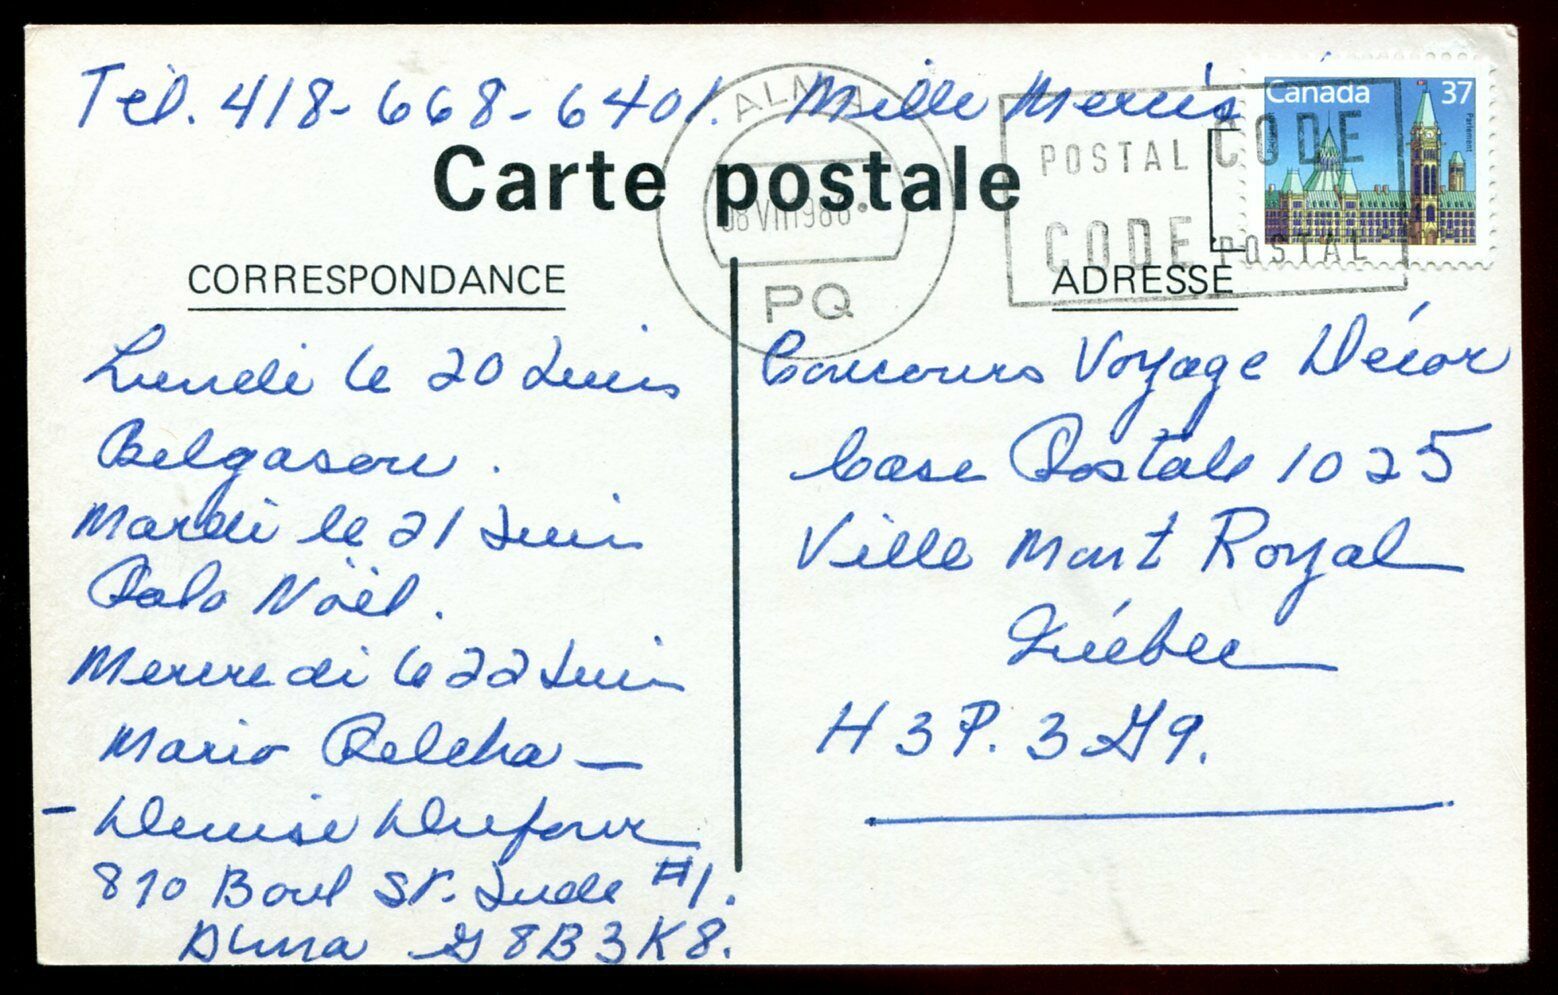 Tél. 418-668-6401. Mille Mercis
Canada 37
Parlement
ALMA
08 VIII 1988
PQ
POSTAL CODE
CODE POSTAL
Carte postale
CORRESPONDANCE
Lundi le 20 Juin
Belgazou.
Mardi le 21 Juin
Palo Nöël.
Mercredi le 22 Juin
Mario Pelcha —
— Denise Dufour
810 Boul St. Jude #1.
Alma G8B3K8.
ADRESSE
Concours Voyage Décor
Case Postale 1025
Ville Mont Royal
Québec
H3P. 3G9.